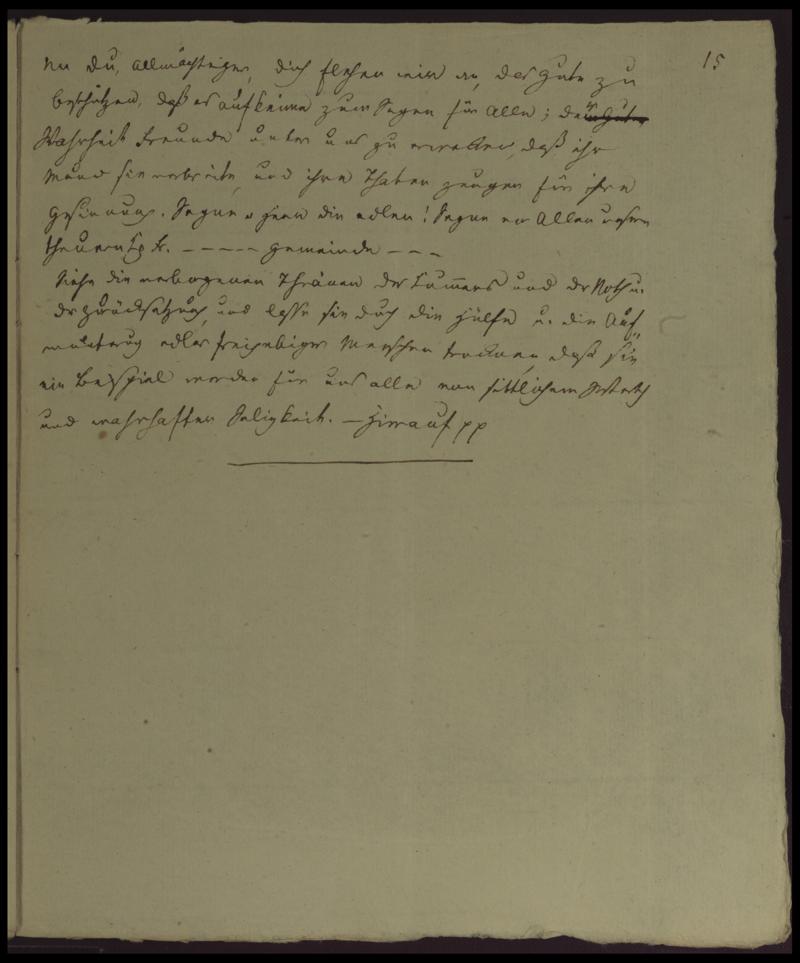 15
Nu du, Allmächtiger, dich flehen wir an, das Gute zu
beschützen, daß es aufkeime zum Segen für Alle; der
Wahrheit Freunde unter uns zu erwecken, daß ihr
Mund sie verbreite, und ihre Thaten zeugen für ihre
Gesinnung. Segne o Herr die edlen! Segne vor Allen unsern
theuern – – – – – Gemeinde – – –
Siehe die verborgenen Thränen des Kummers und der Noth u.
der Zurücksetzung, und lasse sie durch die Hülfe u. die Auf-
munterung edler freigebiger Menschen trocknen, daß sie
ein Beispiel werden für uns alle von sittlichem Werth
und wahrhaften Seligkeit. – Hierauf pp